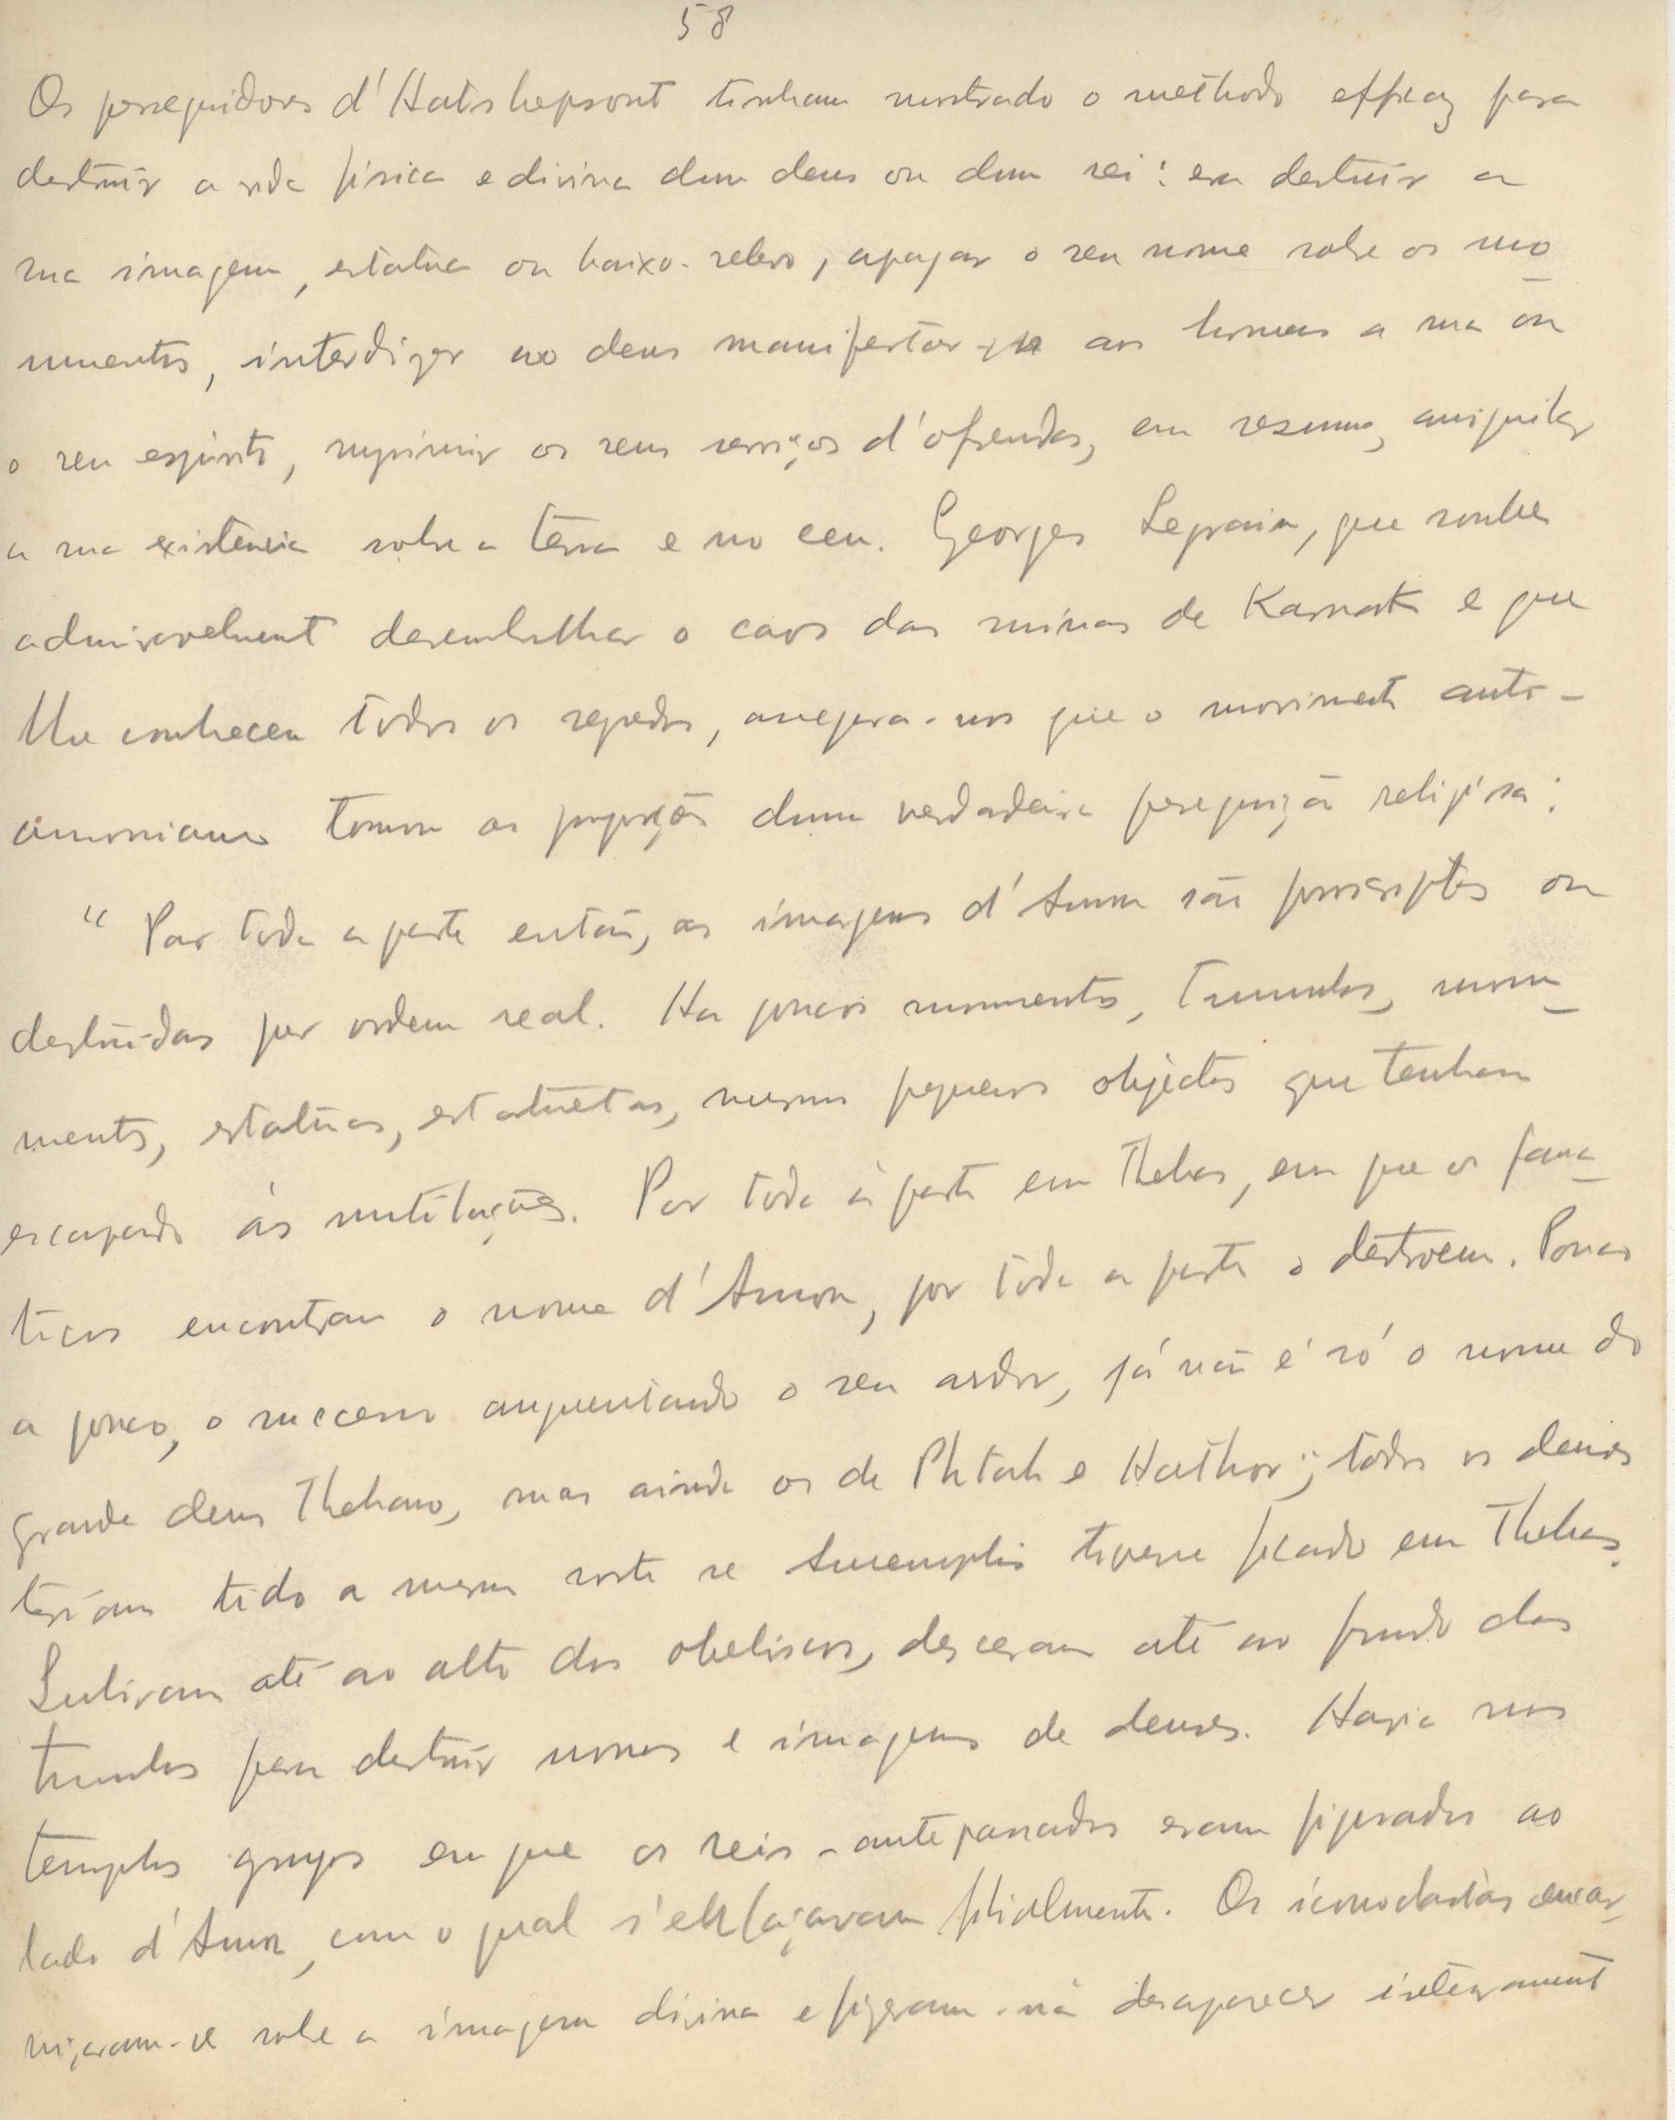 58
Os perseguidores d'Hatshepsout tinham mostrado o méthodo efficaz para
destruir a vida física e divina dum deus ou dum rei: era destruir a
sua imagem, estatua ou baixo-relevo, apagar o seu nome sobre os mo
numentos, interdizer ao deus manifestar-se aos homens a sua
o seu espirito, suprimir os seus serviços d'ofrendas, em resumo, aniquilar
a sua existencia sobre a terra e no ceu. Georges Legrain, que soube
admiravelment desembulhar o caos das ruinas de Karnak e que
lhe conheceu todos os segredos, assegura-nos que o moviment anti-
amoniano tomou as proporções duma verdadeira perseguição religiosa:
" Por toda a parte então, as imagens d'Amon são proscriptas ou
destruidas por ordem real. Ha poucos monumentos, tumulos, monu
mentos, estatuas, estatuetas, mesmo pequenos objectos que tenham
escapado ás mutilações. Por toda a parte em Thebas, em que os fana
ticos encontram o nome d'Amon, por toda a parte o destroem. Pouco
a pouco, o successo augmentando o seu ardor, já não é só o nome do
grande deus Thebano, mas ainda os de Phtah e Hathor; todos os deuses
teriam tido a mesma sorte se Amenophis tivesse ficado em Thebas.
Subiram até ao alto dos obeliscos, desceram até ao fundo dos
tumulos para destruir nomes e imagens de deuses. Havia nos
templos grupos em que os reis-antepassados eram figurados ao
lado d'Amon, com o qual s'enlaçavam filialmente. Os iconoclastas encar
niçaram-se sobre a imagem divina e fizeram-na desaparecer inteirament